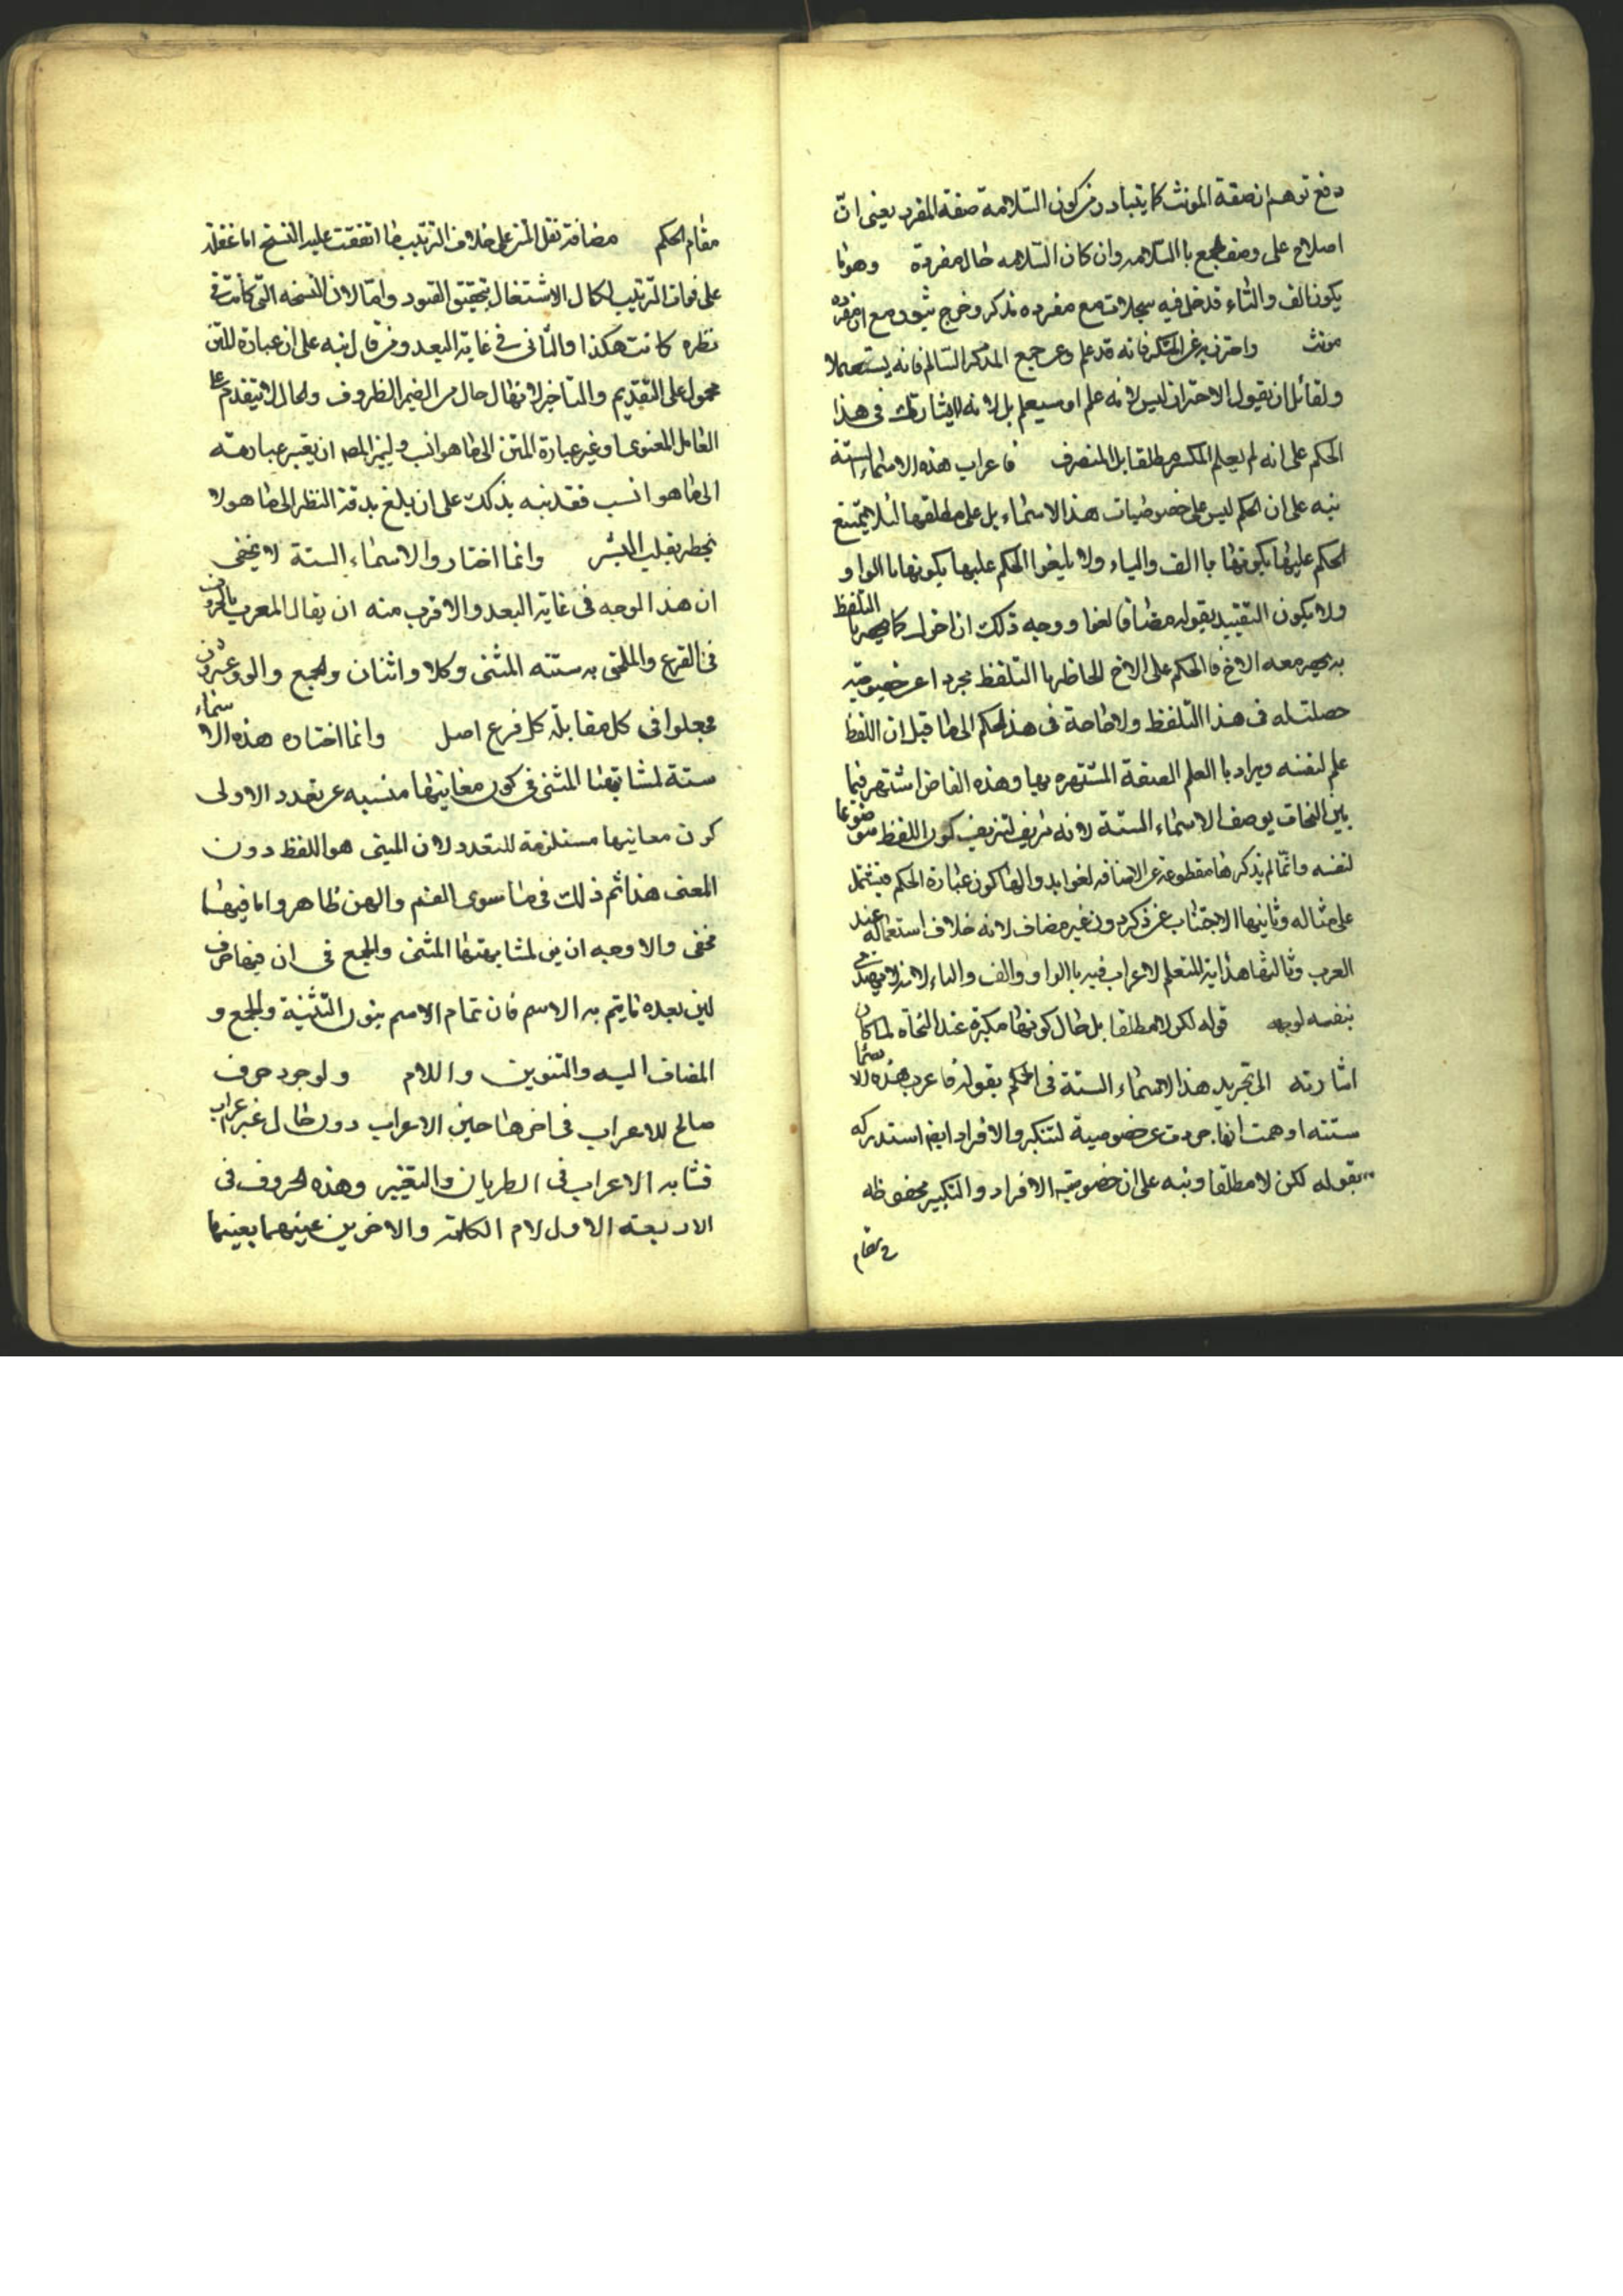 دفع توهم ان صفة المونث كما يتبادر من كون السلامة صفة المفرد يعنى ان
اصلاح على وصف الجمع با السلامه وان كان السلامه حال مفرده وهو ما
يكون الف والتاء قد خل فيه سجلات مع مفرده مذكر وخرج ثبون مع ان مفرده
مونث واحترز به عن المكسر فانه قد علم وعن جمع المذكر السالم فانه يستعملا
ولقائل ان يقول الاحتراز ليس لانه علم او سيعلم بل لانه لا يشاركه فى هذا
الحكم على انه لم يعلم المكسر مطلقا بل المنصرف فاعراب هذه الاسماء الستة
نبه على ان الحكم ليس على خصوصيات هذا الاسماء بل على مطلقها لئلا يمتنع
الحكم عليها بكونها با الف والياء ولا يلغوا الحكم عليها بكونها با الواو
ولا يكون التقييد بقوله مضافا لغوا ووجه ذلك ان اخوك كما يحضر با التلفظ
به يحضر معه الاخ فالحكم على الاخ الحاضر با التلفظ مجردا عن خصوصية
حصلت له فى هذا التلفظ ولا حاجة فى هذا الحكم الى ما قيل ان اللفظ
علم لنفسه ويراد با العلم الصفة المشتهره بها وهذه الفاض اشتهر فيما
بين النحات بوصف الاسماء الستة لانه تزيف لتزيف كون اللفظ موضوعا
لنفسه وانما لم يذكرها مقطوعة عن الاضافه لفوايد والها كون عبارة الحكم مشتمل
على مثاله وثانيها الاجتناب عن ذكره ون غير مضاف لانه خلاف استعماله عند
العرب وثالثها هداية للتعلم لاعراب فيه باالواو والف والياء لانه لا يهتدى
بنفسه لوجه قوله لكن لا مطلقا بل حال كونها مكبرة عند النحاة لما كان
اشارته الى تجريد هذا الاسماء الستة فى الحكم بقوله فاعرب هذه الاسماء
ستته اوهمت انها جردت عن خصوصية لتنكير والافراد ايضا استدركه
بقوله لكن لا مطلقا ونبه على ان خصوصية الافراد والتكبير محفوظه
فى مقام
مقام الحكم مضافة نقل المتن على خلاف الترتيب ما اتفقت عليه النسخ اما غفلة
على فوات الترتيب لكمال الاشتغال بتحقيق القيود واما لان النسخه التى كانت فى
نظره كانت هكذا والثانى فى غاية البعد ومن قال نبه على ان عبارة المتن
محمول على التقديم والتاخير لانها حال من الضمير الظروف والحال لا تتقدم على
العامل المعنوى او غير عبارة المتن الى ما هو انسب وليز المصـ ان يغير عبارته
الى ما هو انسب فقد نبه بذلك على ان بلغ بدقة النظر الى ما هو لا
يخطر بقلب البشر وانما اختار والاسماء الستة لا يخفى
ان هذا الوجه فى غاية البعد والاقرب منه ان يقال المعرب بالحروف
فى القرع والملحق به ستته المثنى وكلا واثنان والجمع والو وعشرون
فجعلوا فى كل مقابلة كل فرع اصل وانما اختاره هذه الاسماء
ستة لمشابهتها المثنى فى كون معانيها منبئه عن تعدد الاولى
كون معانيها مستلزمة للتعدد لان المبنى هو اللفظ دون
المعنى هذا ثم ذلك فى ما سوى الفم والهن ظاهر واما فيهما
مخفى والاوجه ان بن لمشابهتها المثنى والجمع فى ان فيها حرف
لين بعده ما يتم به الاسم فان تمام الاسم بنون التثنية والجمع و
المضاف اليه والتنوين واللام ولوجود حرف
صالح للاعراب فى اخرها حين الاعراب دون حال غير اعراب
فشابه الاعراب فى الطريان والتغيير وهذه الحروف فى
الاربعة الاول لام الكلمة والاخرين عينهما بعينها